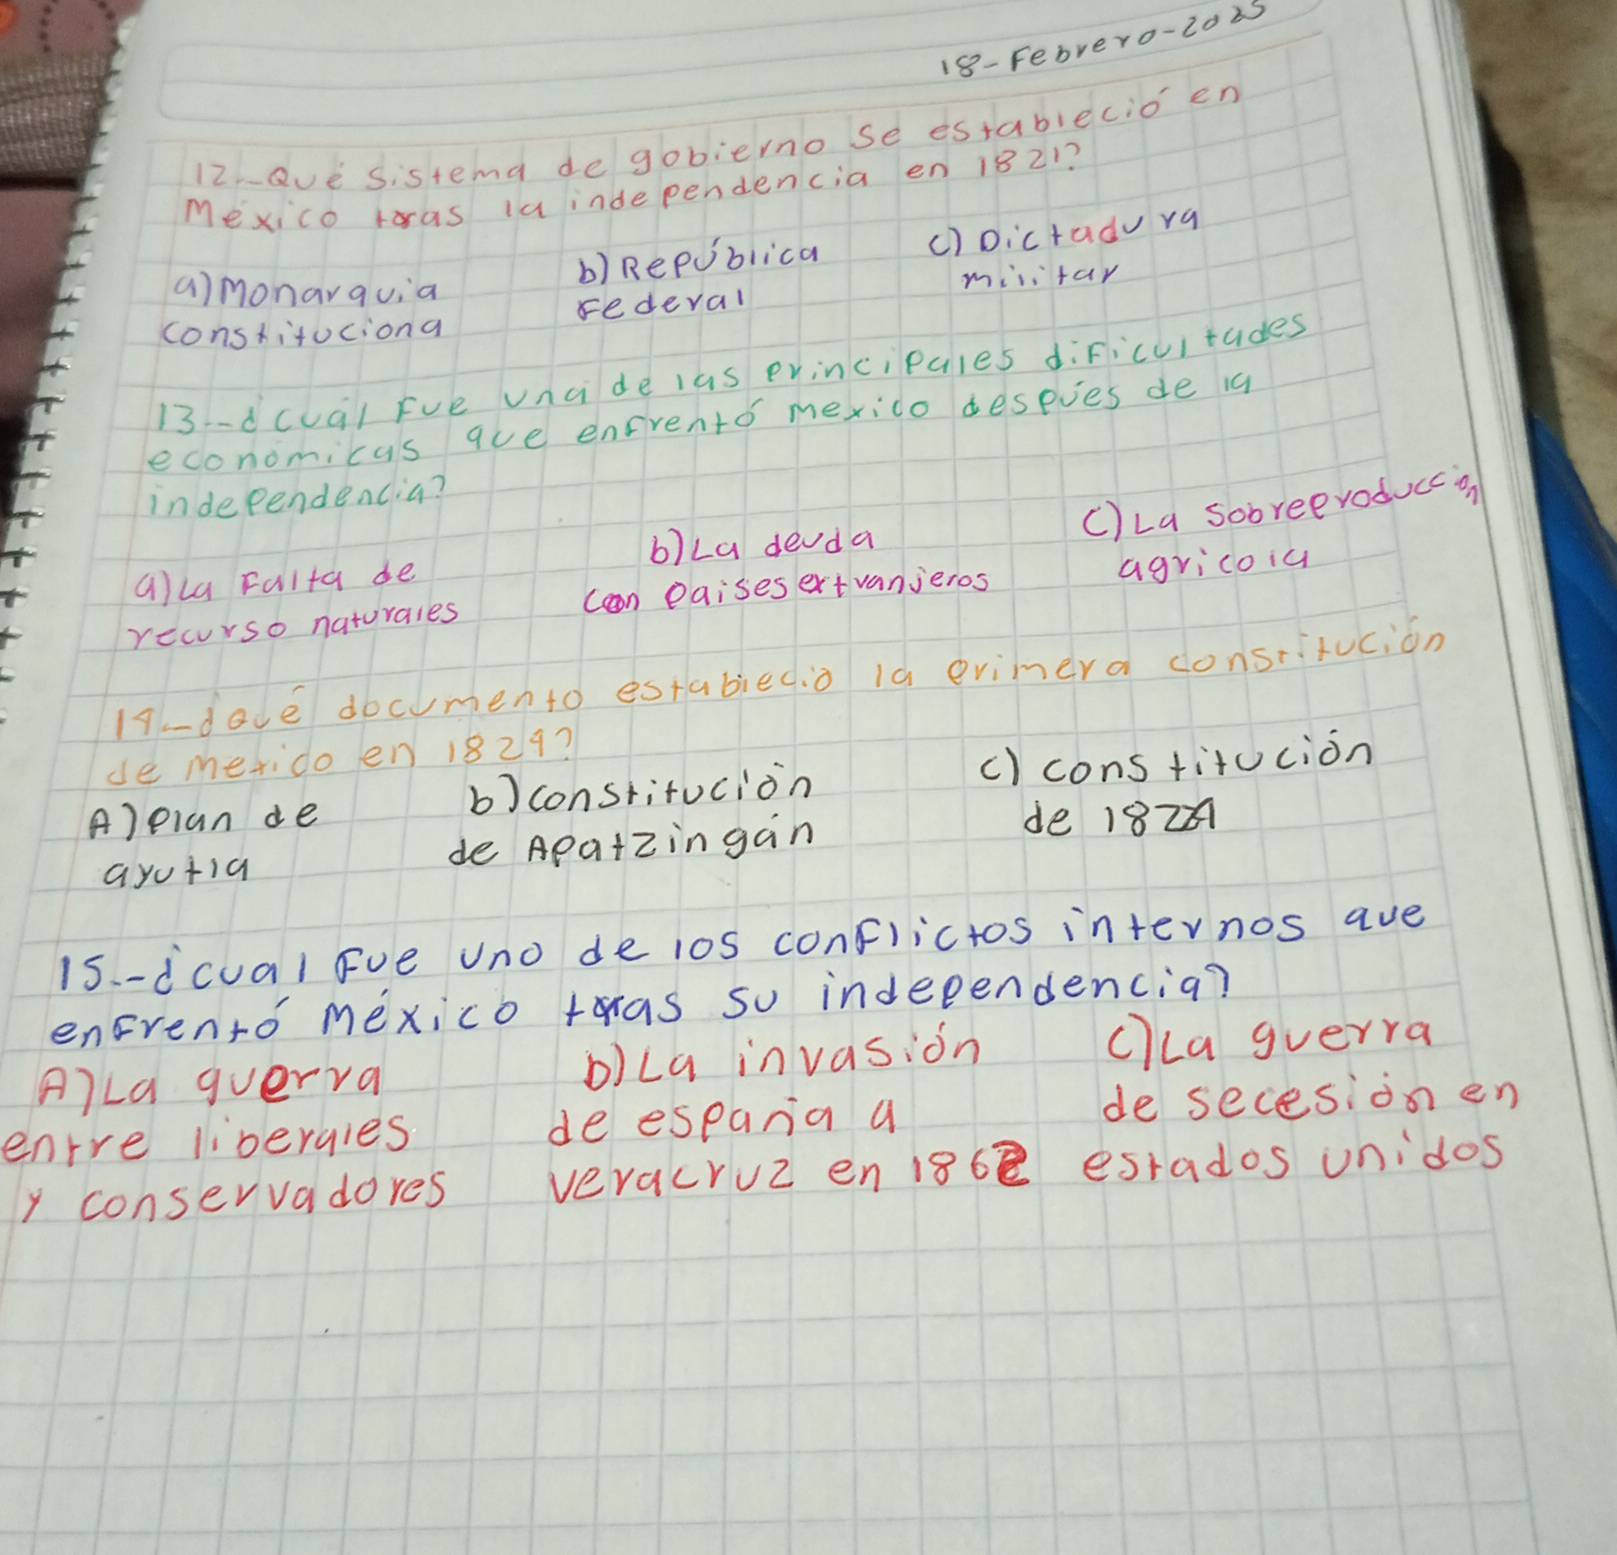 18-Febrero-2025
12.-Qué sistema de gobierno se estableció en
México tras la independencia en 1821?
a) Monarquia
constituciona
b) República
Federal
c) Dictadura
militar
13.-¿cuál Fue una de las principales dificultades
economicas que enfrentó mexico despúes de la
independencia?
a) La Falta de
recurso naturales
b) La deuda
con paises extranjeros
c) La sobreproduccion
agricola
14.-¿Qué documento establecio la primera constitución
de mexico en 1824?
A) plan de
ayutla
b) constitución
de Apatzingán
c) constitución
de 1824
15.-¿cual Fue uno de los conflictos internos que
enfrentó México tras su independencia?
A) La guerra
entre liberales
y conservadores
b) La invasión
de españa a
veracruz en 1862
c) La guerra
de secesión en
estados unidos